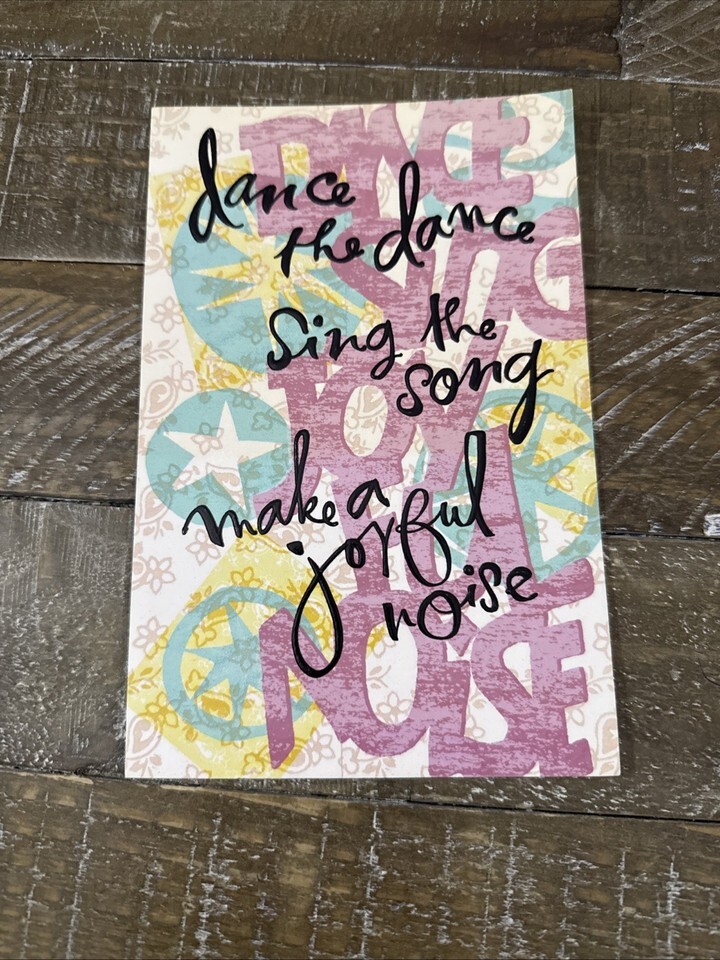 dance
the dance
sing the
song
make a
joyful
noise
DANCE
SING
JOY
NOISE